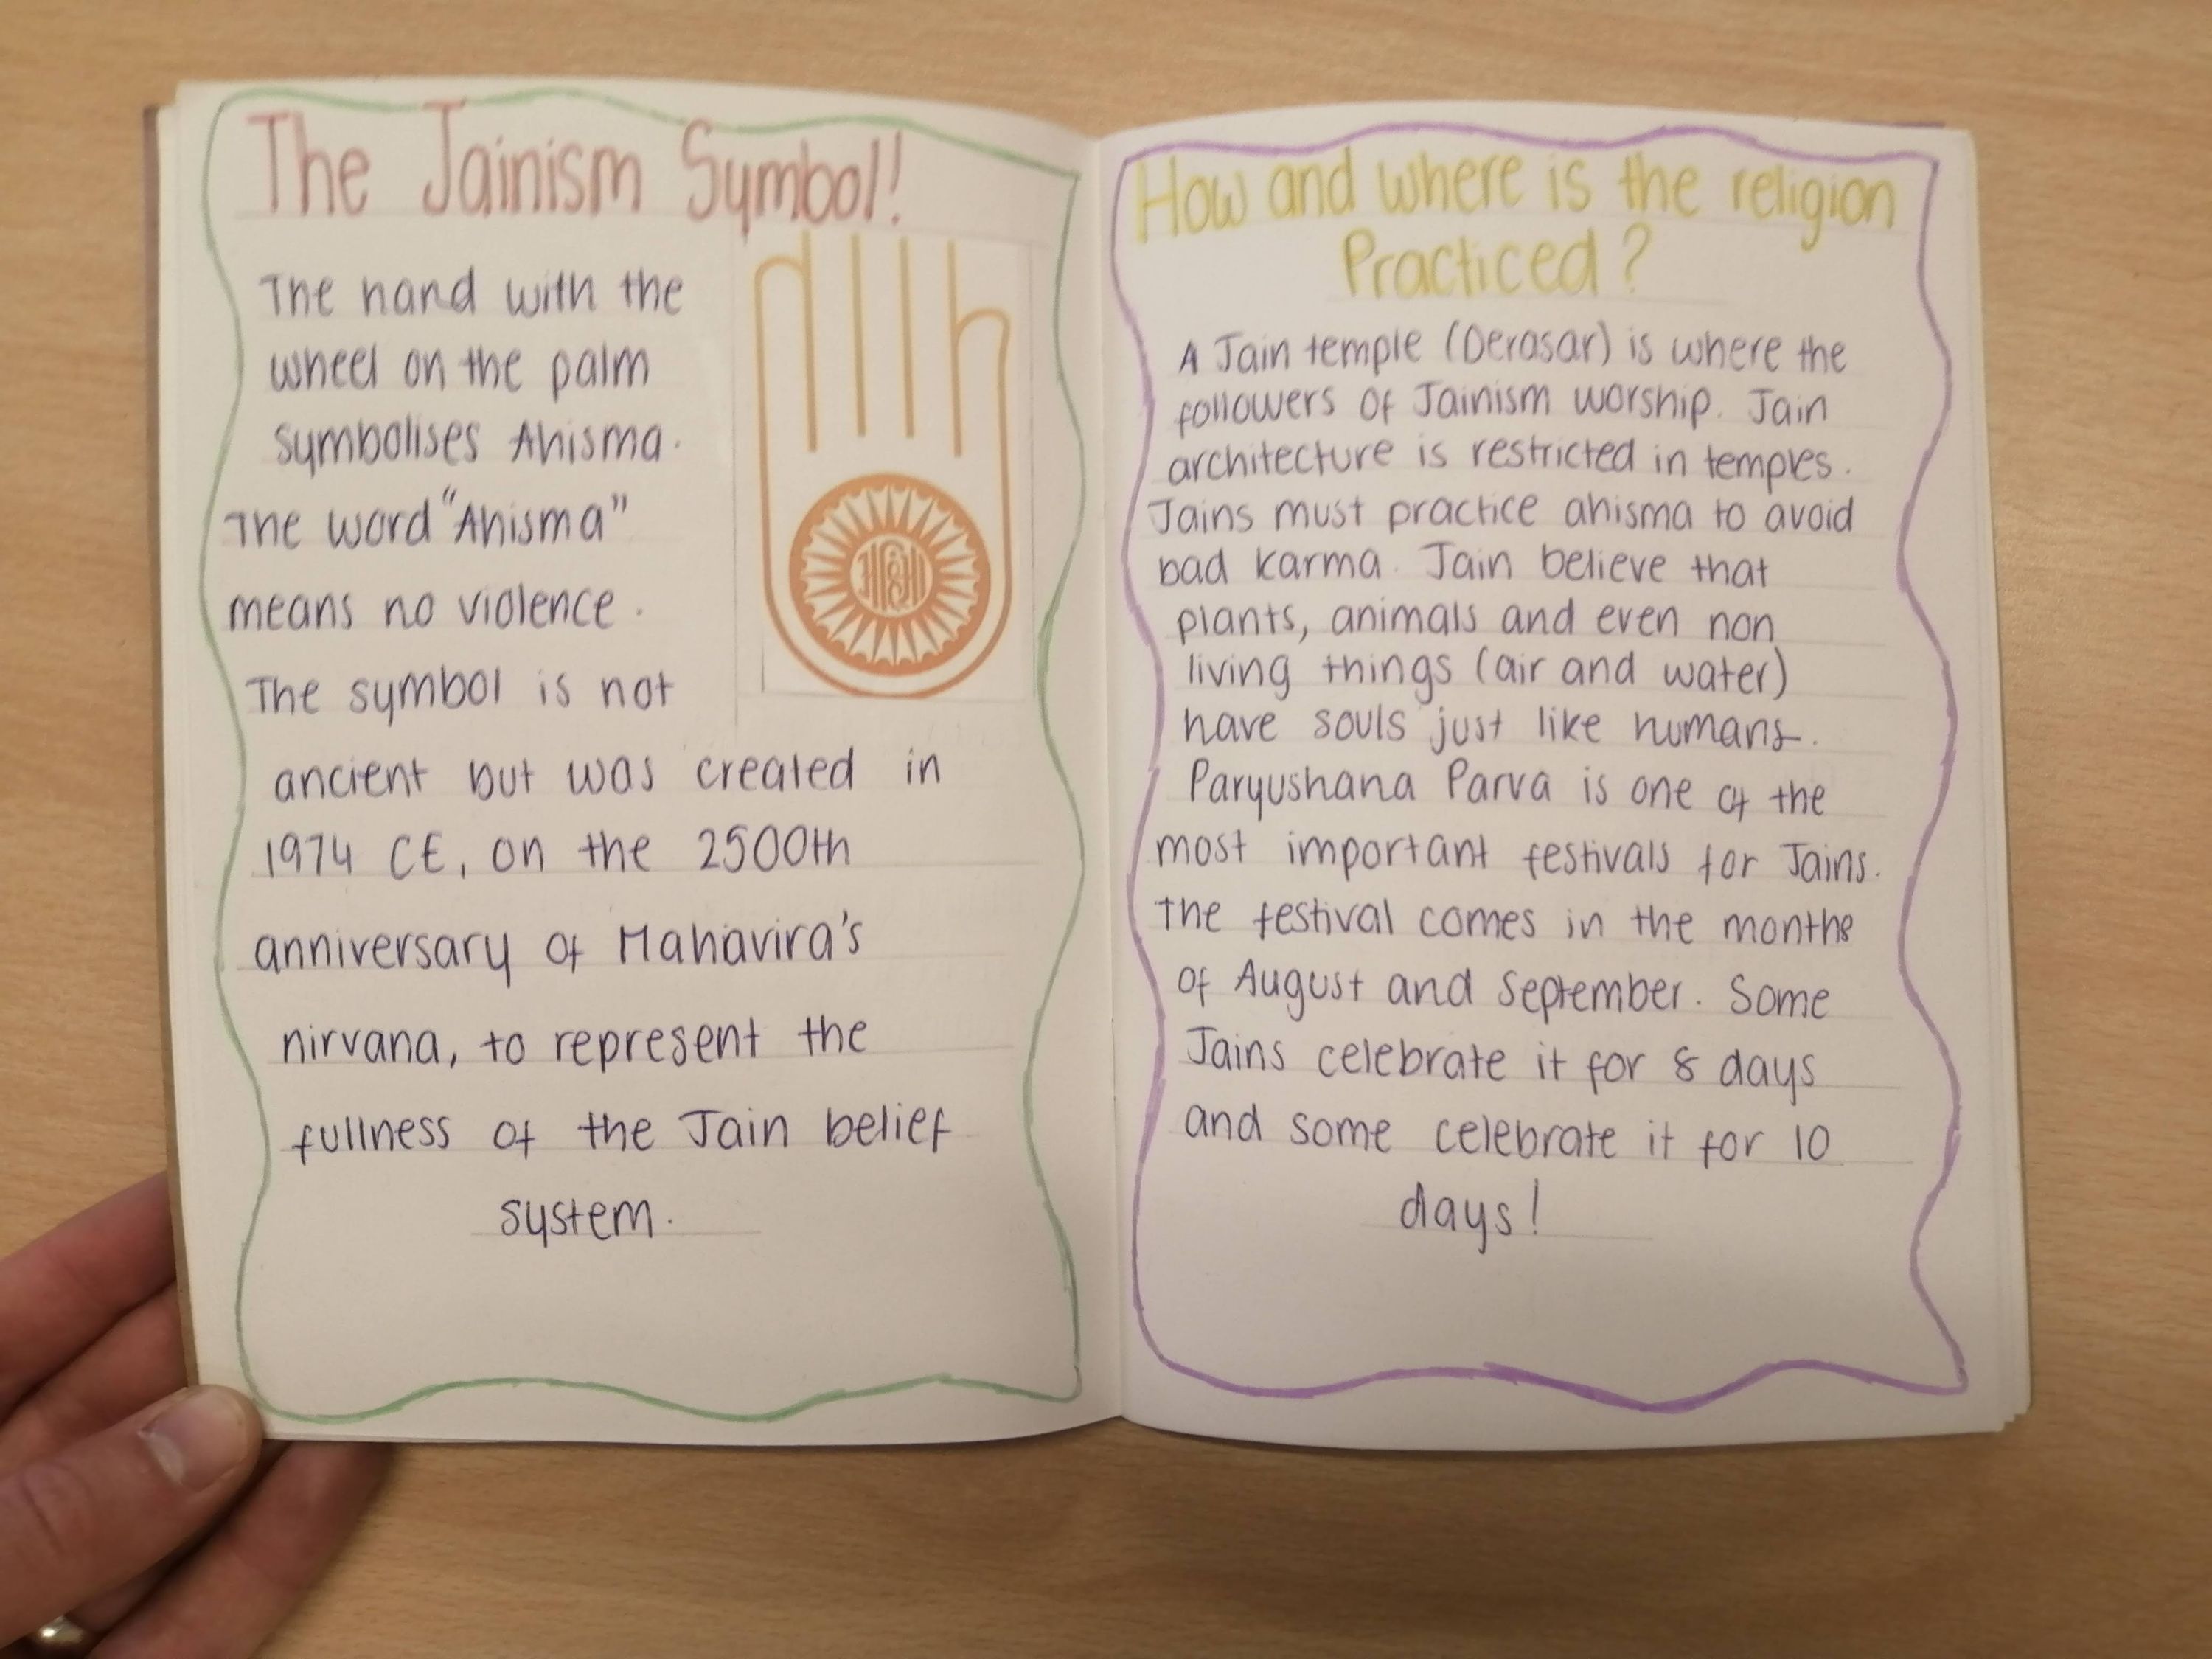 The Jainism Symbol!
The hand with the
wheel on the palm
symbolises Ahisma.
The word "Ahisma"
means no violence.
The symbol is not
ancient but was created in
1974 CE, on the 2500th
anniversary of Mahavira's
nirvana, to represent the
fullness of the Jain belief
system.
How and where is the religion
Practiced?
A Jain temple (Derasar) is where the
followers of Jainism worship. Jain
architecture is restricted in temples.
Jains must practice ahisma to avoid
bad karma. Jain believe that
plants, animals and even non
living things (air and water)
have souls just like humans.
Paryushana Parva is one of the
most important festivals for Jains.
The festival comes in the months
of August and September. Some
Jains celebrate it for 8 days
and some celebrate it for 10
days!